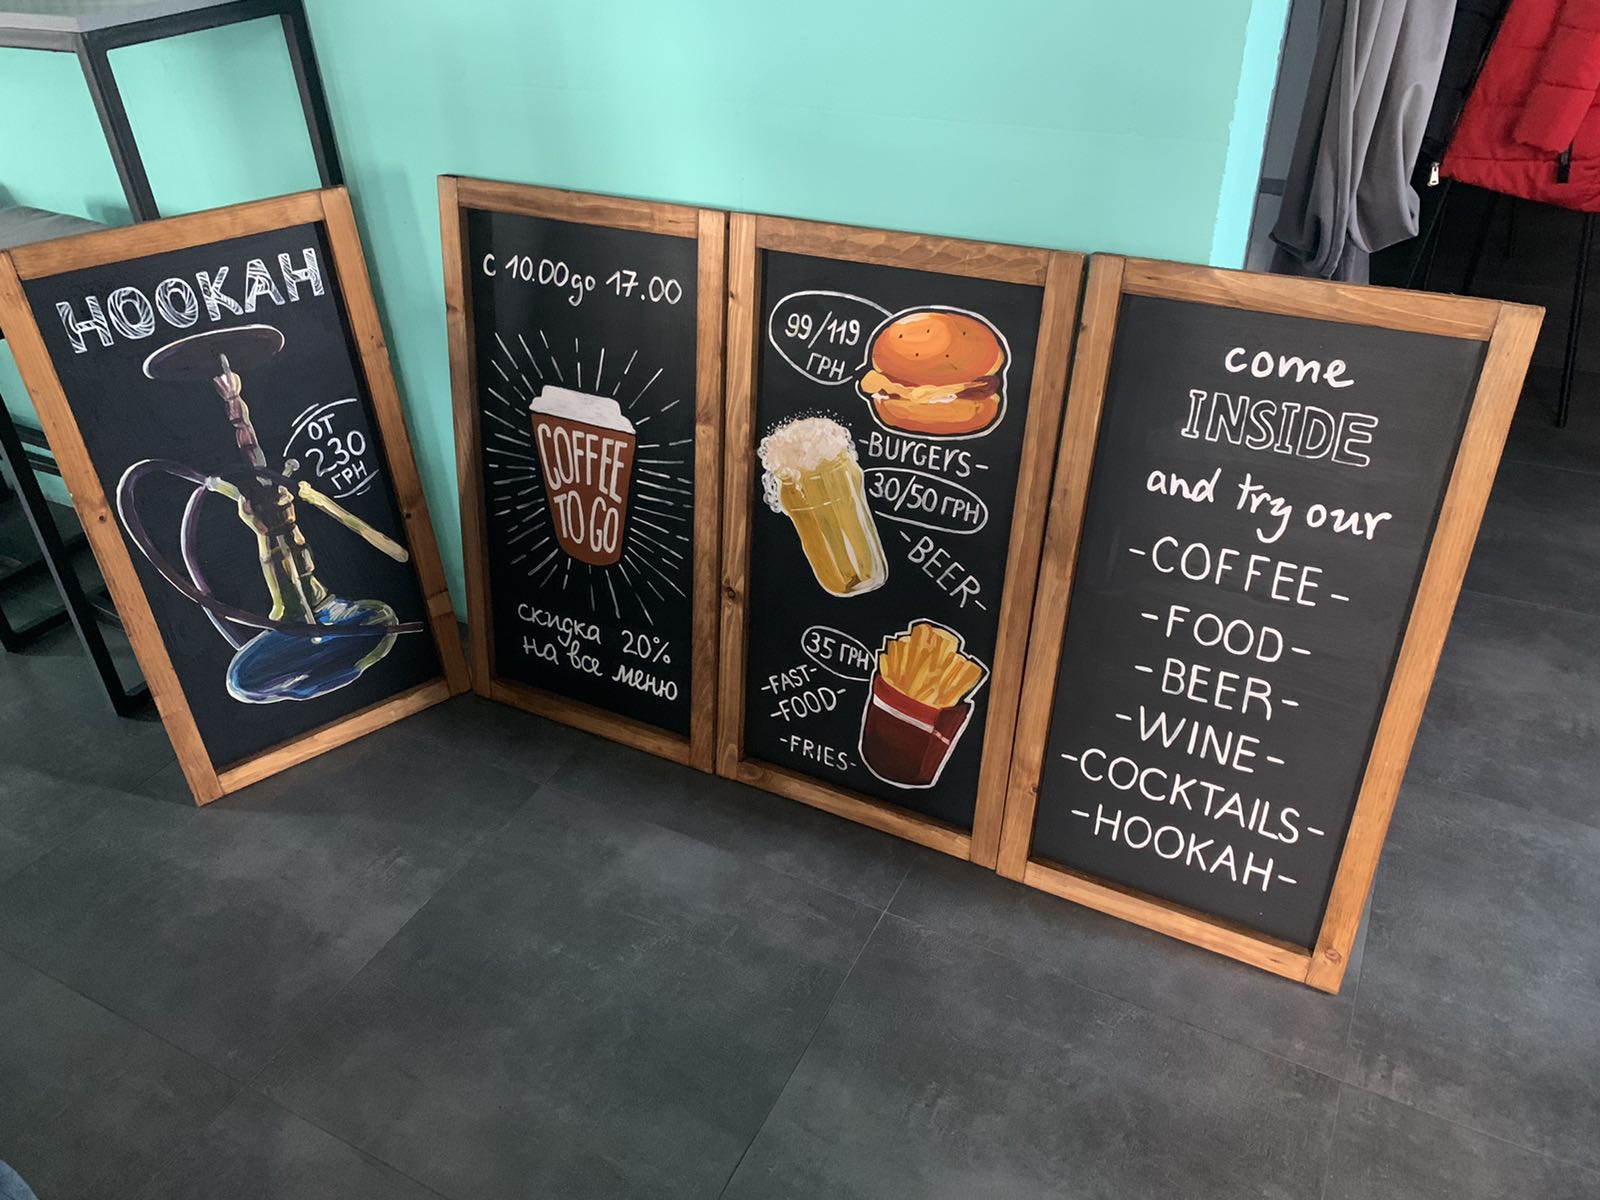 HOOKAH
ОТ
230
ГРН
с 10.00 до 17.00
COFFEE
TO GO
скидка 20%
на все меню
99/119
ГРН
-BURGERS-
30/50 ГРН
-BEER-
35 ГРН
-FAST-
-FOOD-
-FRIES-
come
INSIDE
and try our
-COFFEE-
-FOOD-
-BEER-
-WINE-
-COCKTAILS-
-HOOKAH-